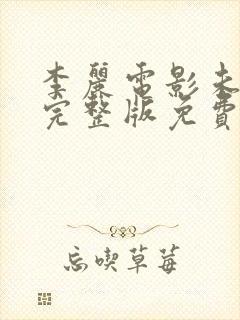 李麗電影未
完整版免費
忘喫草莓